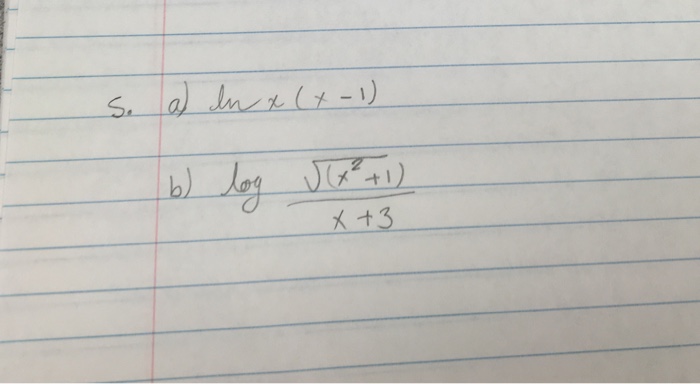 5. a) ln x (x - 1)
b) log √(x² + 1)
x + 3